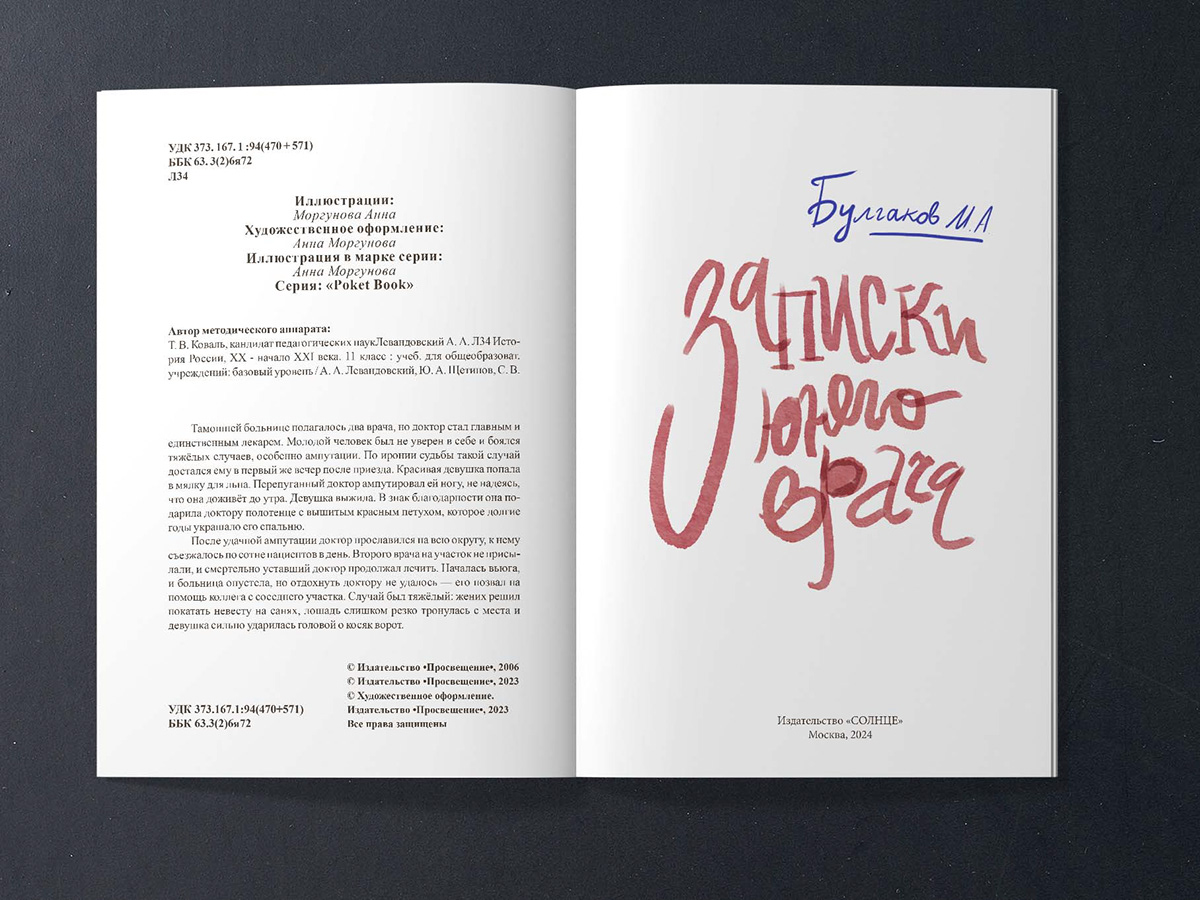 УДК 373. 167. 1 :94(470 + 571)
ББК 63. 3(2)6я72
Л34
Иллюстрации:
Моргунова Анна
Художественное оформление:
Анна Моргунова
Иллюстрация в марке серии:
Анна Моргунова
Серия: «Poket Book»
Автор методического аппарата:
Т. В. Коваль, кандидат педагогических наукЛевандовский А. А. Л34 Исто-
рия России, XX - начало XXI века. 11 класс : учеб. для общеобразоват.
учреждений: базовый уровень / А. А. Левандовский, Ю. А. Щетинов, С. В.
Тамошней больнице полагалось два врача, но доктор стал главным и
единственным лекарем. Молодой человек был не уверен в себе и боялся
тяжёлых случаев, особенно ампутации. По иронии судьбы такой случай
достался ему в первый же вечер после приезда. Красивая девушка попала
в мялку для льна. Перепуганный доктор ампутировал ей ногу, не надеясь,
что она доживёт до утра. Девушка выжила. В знак благодарности она по-
дарила доктору полотенце с вышитым красным петухом, которое долгие
годы украшало его спальню.
После удачной ампутации доктор прославился на всю округу, к нему
съезжалось по сотне пациентов в день. Второго врача на участок не присы-
лали, и смертельно уставший доктор продолжал лечить. Началась вьюга,
и больница опустела, но отдохнуть доктору не удалось — его позвал на
помощь коллега с соседнего участка. Случай был тяжёлый: жених решил
покатать невесту на санях, лошадь слишком резко тронулась с места и
девушка сильно ударилась головой о косяк ворот.
© Издательство •Просвещение•, 2006
© Издательство •Просвещение•, 2023
© Художественное оформление.
Издательство •Просвещение•, 2023
Все права защищены
УДК 373.167.1:94(470+571)
ББК 63.3(2)6я72
Булгаков М.А
Записки
юного
врача
Издательство «СОЛНЦЕ»
Москва, 2024